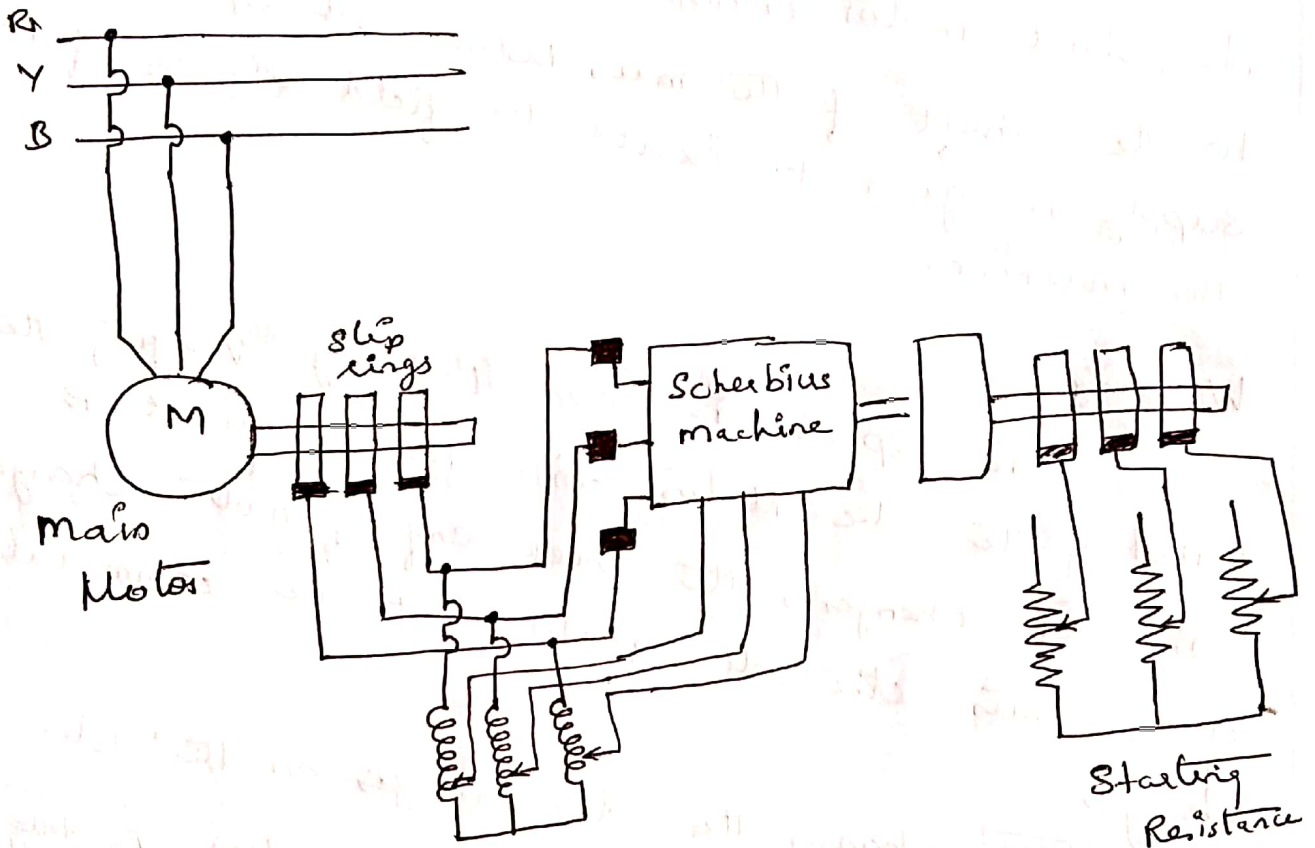 R
Y
B
M
Slip
rings
Scherbius
machine
Main
Motor
Starting
Resistance